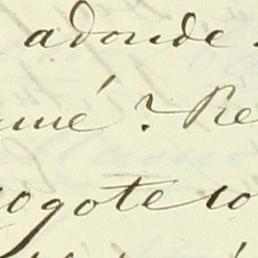 adonde
umé? Re
cogote co